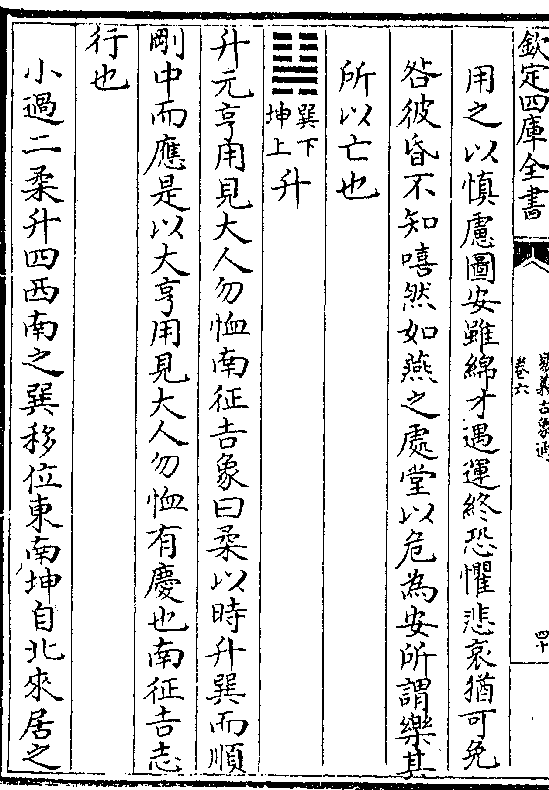 欽定四庫全書
易義古象通
卷六
四十
用之以慎慮圖安雖綿才遇運終恐懼悲哀猶可免
咎彼昏不知嘻然如燕之處堂以危為安所謂樂其
所以亡也
巽下
坤上
升
升元亨用見大人勿恤南征吉彖曰柔以時升巽而順
剛中而應是以大亨用見大人勿恤有慶也南征吉志
行也
小過二柔升四西南之巽移位東南坤自北來居之